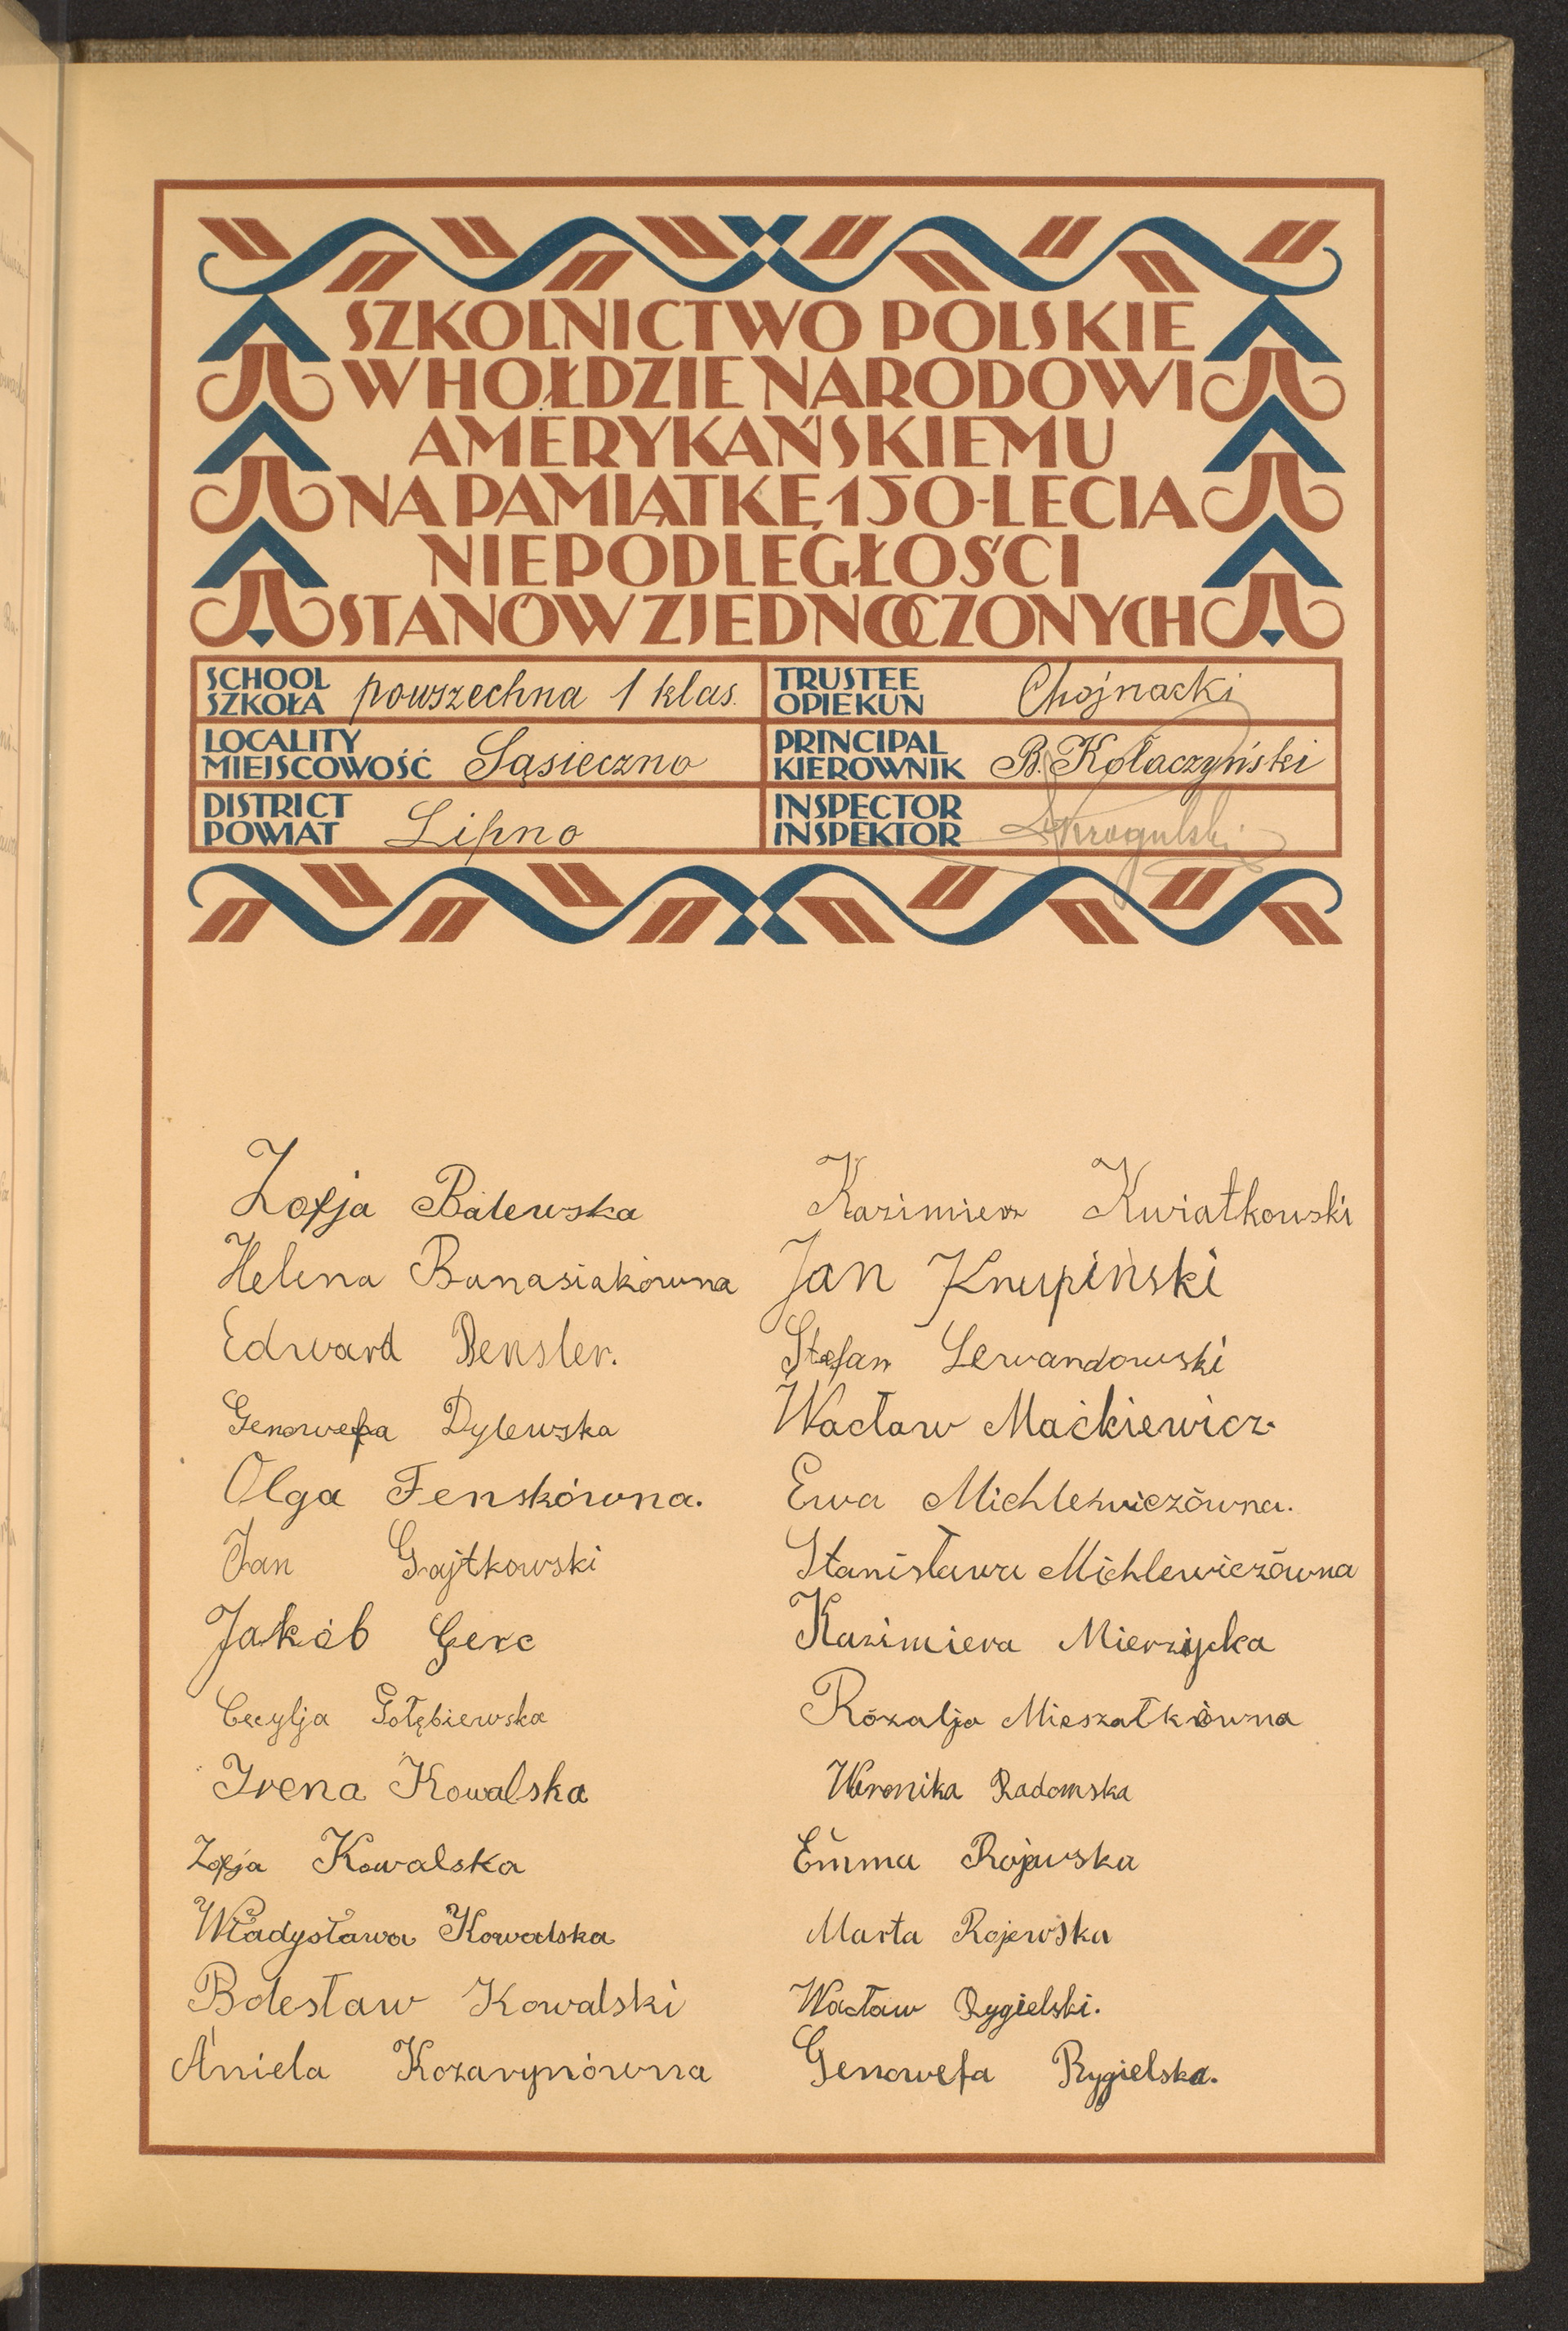 SZKOLNICTWO POLSKIE
W HOŁDZIE NARODOWI
AMERYKAŃSKIEMU
NA PAMIĄTKĘ 150-LECIA
NIEPODLEGŁOŚCI
STANÓW ZJEDNOCZONYCH
SCHOOL
SZKOŁA powszechna 1 klas.
TRUSTEE
OPIEKUN Chojnacki
LOCALITY
MIEJSCOWOŚĆ Sąsieczno
PRINCIPAL
KIEROWNIK B. Kołaczyński
DISTRICT
POWIAT Lipno
INSPECTOR
INSPEKTOR
Zofja Balewska
Helena Banasiakówna
Edward Bensler.
Genowefa Dylewska
Olga Fenskówna.
Jan Gajtkowski
Jakób Gerc
Cecylja Gołębiewska
Irena Kowalska
Zofja Kowalska
Władysława Kowalska
Bolesław Kowalski
Aniela Kozarynówna
Kazimierz Kwiatkowski
Jan Knupiński
Stefan Lewandowski
Wacław Maćkiewicz
Ewa Michlewiczówna.
Stanisława Michlewiczówna
Kazimiera
Rózalja Mieszałkówna
Weronika Radomska
Emma Rojewska
Marta Rojewska
Wacław Rygielski.
Genowefa Rygielska.